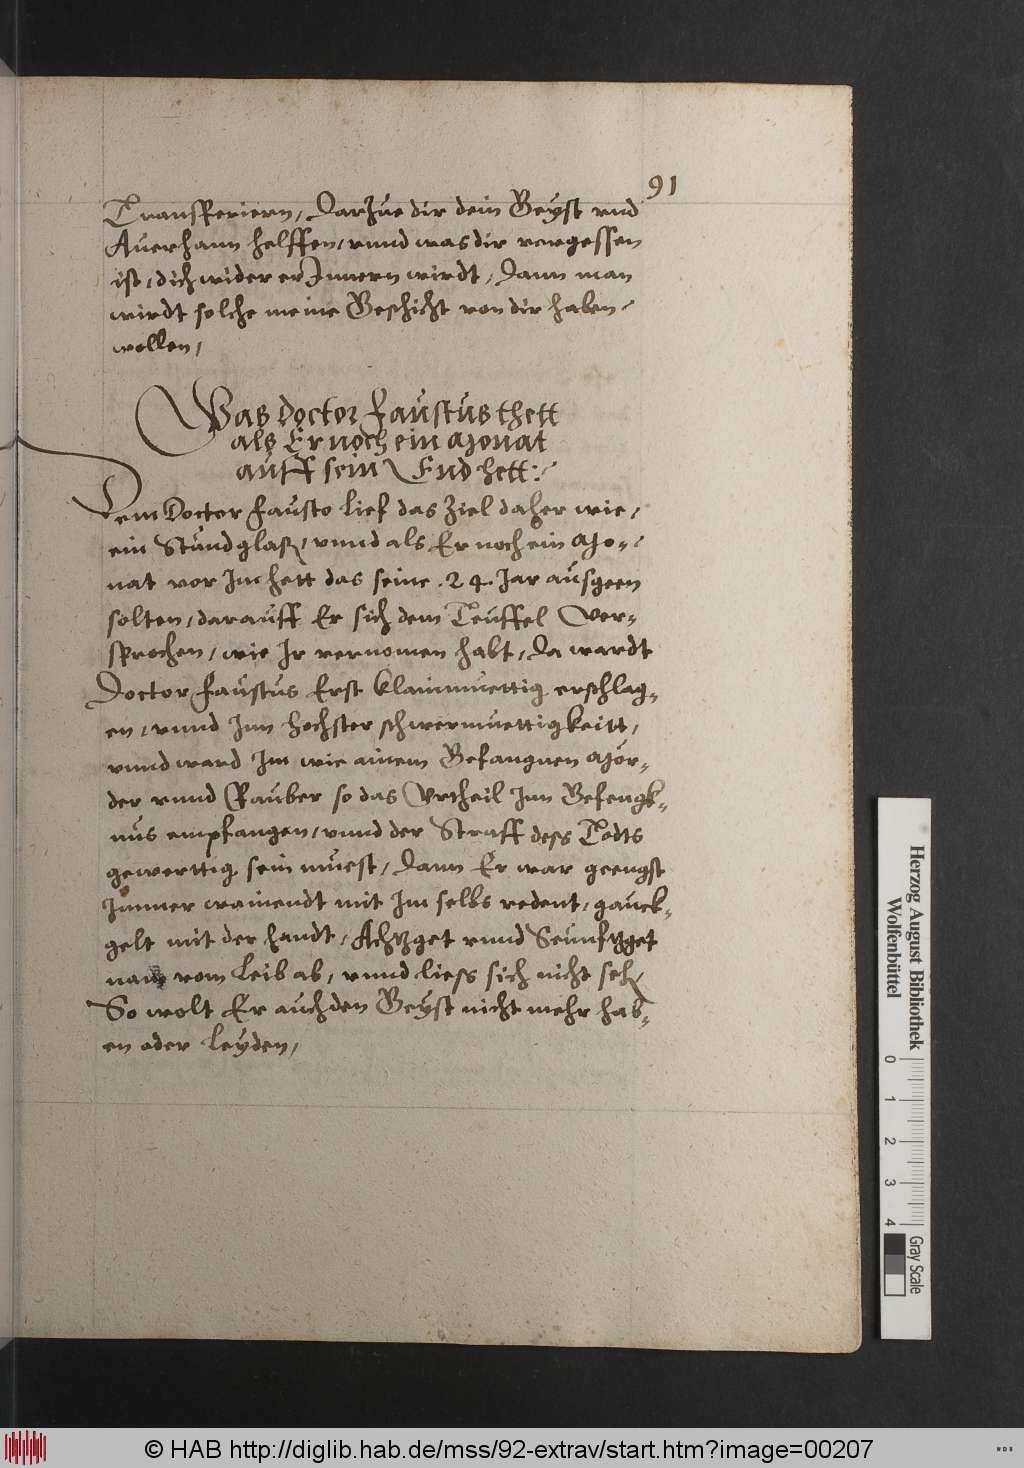 91
Transfferiern, Darzue dir dein Geyst vnd
Auerhann helffen, vnnd was dir vergessen
ist, dich wider erInnern wirdt, Dann man
wirdt solche meine Geschicht von dir haben
wollen,
Was Doctor Faustus thett
als Er noch ein Monat
auff sein End hett:
Dem Doctor Fausto lief das Ziel daher wie,
ein Stundglaß, vnnd als Er noch ein Mo-
nat vor Im hett das seine .24. Jar ausgeen
solten, darauff Er sich dem Teuffel Ver-
sprochen, wie Ir vernomen habt, Da wardt
Doctor Faustus Erst klainmuettig erschlag-
en, vnnd Inn hochster schwermuettigkeitt,
vnnd ward Im wie ainem Gefangnen Mör-
der vnnd Rauber so das Vrtheil Inn Gefengk-
nus empfangen, vnnd der Straff dess Todts
gewerttig sein muest, Dann Er war geengst
Immer wainendt mit Im selbs redent, gauck-
gelt mit der handt, Achtzget vnnd Seunftzget
nam vom Leib ab, vnnd liess sich nicht sehen
So wolt Er auch den Geyst nicht mehr hab-
en oder Leyden,
Herzog August Bibliothek
Wolfenbüttel
0 1 2 3 4
Gray Scale
© HAB http://diglib.hab.de/mss/92-extrav/start.htm?image=00207